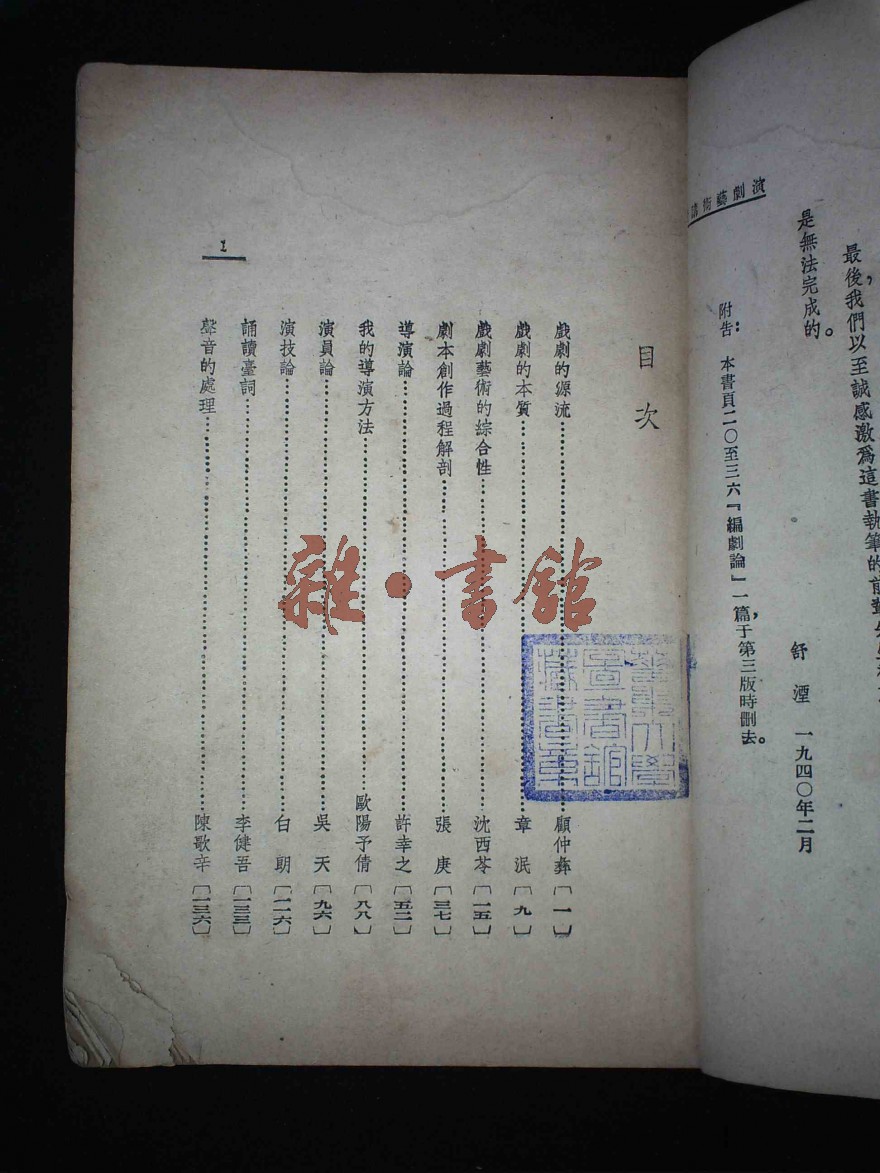 演劇藝術講
最後,我們以至誠感激爲這書執筆的前輩
是無法完成的。
舒湮 一九四〇年二月
附告: 本書頁二〇至三六『編劇論』一篇,于第三版時刪去。
目次
戲劇的源流……顧仲彝〔一〕
戲劇的本質……章泯〔九〕
戲劇藝術的綜合性……沈西苓〔一五〕
劇本創作過程解剖……張庚〔三七〕
導演論……許幸之〔五二〕
我的導演方法……歐陽予倩〔八八〕
演員論……吳天〔九六〕
演技論……白朗〔一一六〕
誦讀臺詞……李健吾〔一三三〕
聲音的處理……陳歌辛〔一三六〕
1
大學
圖書館
藏書章
雜·書館